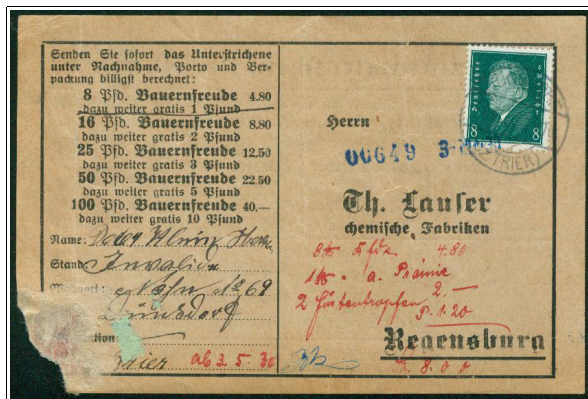 Senden Sie sofort das Unterstrichene
unter Nachnahme, Porto und Ver-
packung billigst berechnet:
8 Pfd. Bauernfreude 4.80
dazu weiter gratis 1 Pfund
16 Pfd. Bauernfreude 8.80
dazu weiter gratis 2 Pfund
25 Pfd. Bauernfreude 12.50
dazu weiter gratis 3 Pfund
50 Pfd. Bauernfreude 22.50
dazu weiter gratis 5 Pfund
100 Pfd. Bauernfreude 40.—
dazu weiter gratis 10 Pfund
Name:
Stand: Invalide
69
ab 3. 5. 30
Deutsches Reich
8 8
TRIER
Herrn
00649
Th. Lauser
chemische Fabriken
4.80
a. Prämie
2 2.—
1.20
Regensburg
8.00